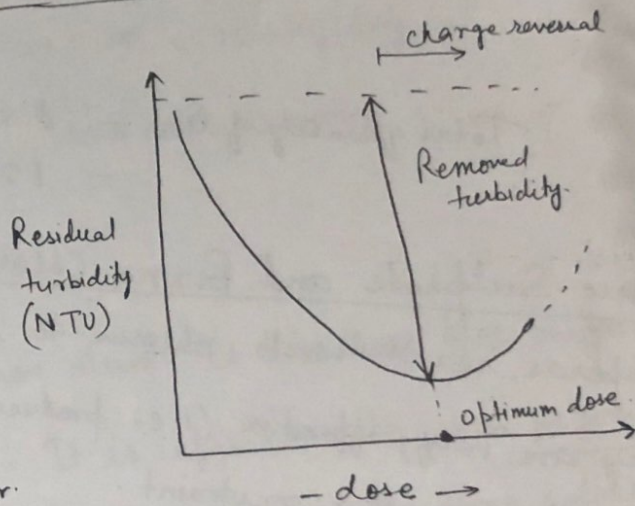 charge reversal
Removed
turbidity.
Residual
turbidity
(NTU)
optimum dose.
- dose →
r.